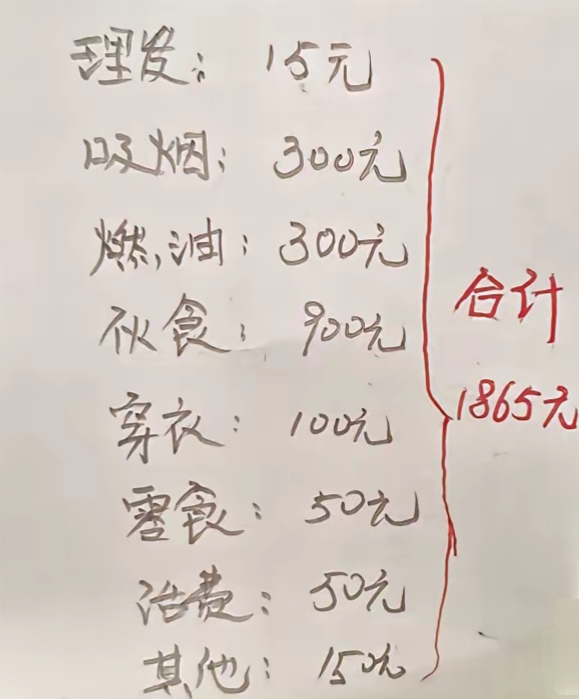 理发：15元
吸烟：300元
燃油：300元
伙食：900元
穿衣：100元
零食：50元
话费：50元
其他：150元
合计
1865元